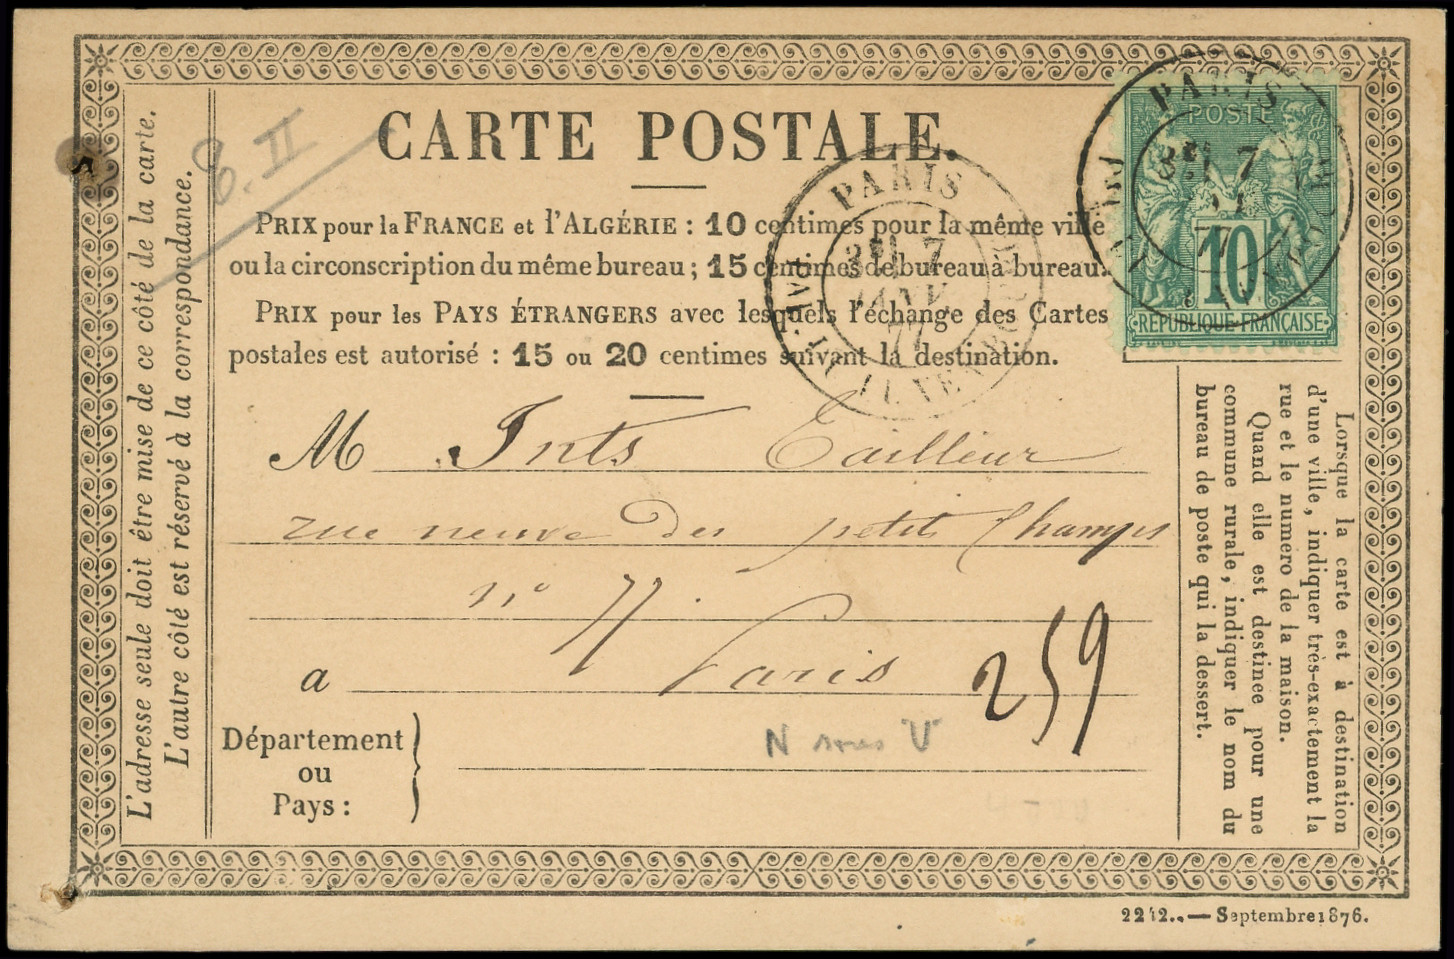 CARTE POSTALE.
PRIX pour la FRANCE et l'ALGÉRIE : 10 centimes pour la même ville
ou la circonscription du même bureau ; 15 centimes de bureau à bureau.
PRIX pour les PAYS ÉTRANGERS avec lesquels l'échange des Cartes
postales est autorisé : 15 ou 20 centimes suivant la destination.
M Ints Tailleur
rue neuve des petits Champs
n° 77
a Paris
259
N sous U
Département
ou
Pays :
L'adresse seule doit être mise de ce côté de la carte.
L'autre côté est réservé à la correspondance.
8. II
POSTE
10
REPUBLIQUE FRANÇAISE
PARIS
7
77
PARIS
7
JANV
77
Lorsque la carte est à destination
d'une ville, indiquer très-exactement la
rue et le numéro de la maison.
Quand elle est destinée pour une
commune rurale, indiquer le nom du
bureau de poste qui la dessert.
Septembre 1876.